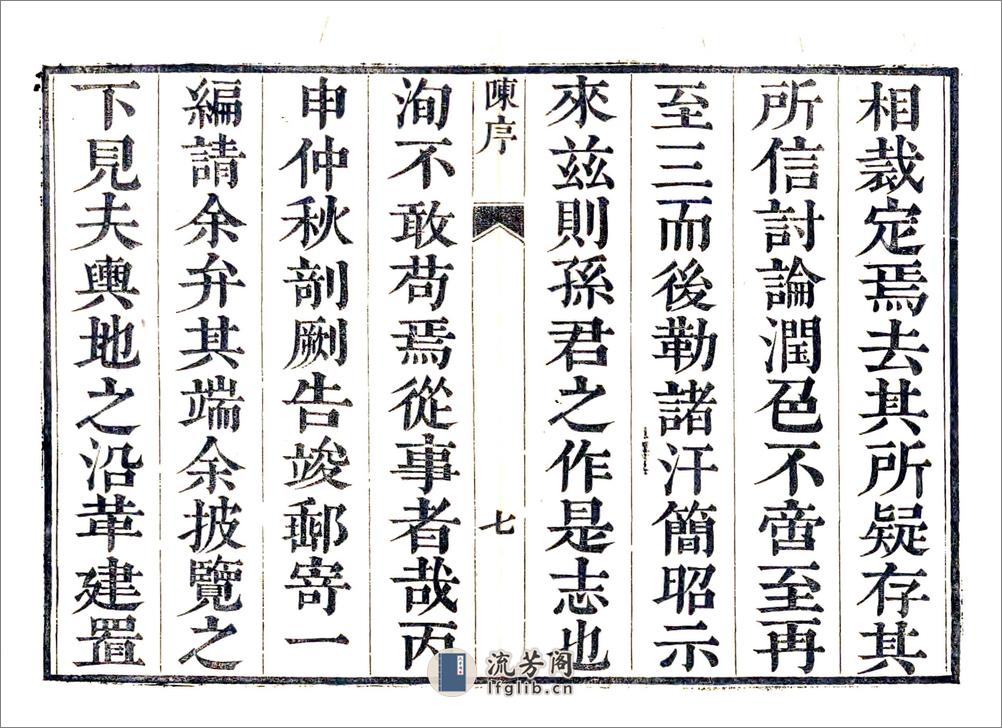 相裁定焉去其所疑存其
所信討論潤色不啻至再
至三而後勒諸汗簡昭示
來茲則孫君之作是志也
陳序
七
洵不敢苟焉從事者哉丙
申仲秋剖劂告竣郵寄一
編請余弁其端余披覽之
下見夫輿地之沿革建置
流芳阁
lfglib.cn